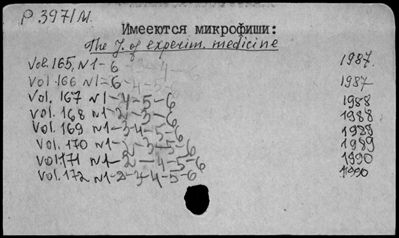 P 397/М.
Имеются микрофиши:
The J. of experim. medicine
Vol. 165, N1-6 1987.
Vol 166 N1-6 1987
Vol. 167 N1-4-5-6 1988
Vol. 168 N1-2-3-6 1988
Vol. 169 N1-3-4-5-6 1989
Vol. 170 N1-2-3-5-6 1989
Vol 171 N1-2-4-5-6 1990
Vol. 172 N1-2-3-4-5-6 1990